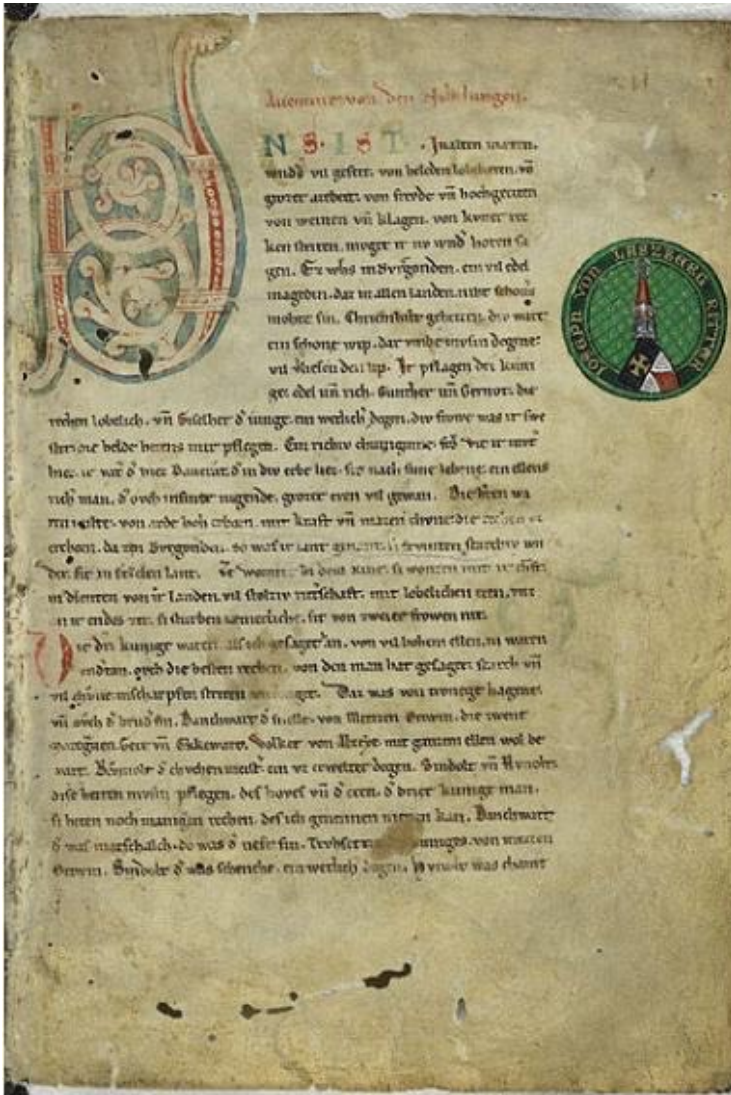 Auenture von den Nibelungen.
VNS. IST. In alten mæren.
wnders vil geseit. von heleden lobebæren. vn̄
grozer arebeit. von frevde vn̄ hochgeciten
von weinen vn̄ klagen. von kvner rec
ken striten. mvget ir nv wnd᾽ horen sa
gen. Ez whs in Bvrgonden. ein vil edel
magedin. daz in allen landen. niht schoners
mohte sin. Chriemhilt geheizen. div wart
ein schone wip. dar vmbe mvsin degene.
vil verliesen den lip. Ir pflagen dri kuni
ge. edel vn̄ rich. Gunther vn̄ Gernot. die
rechen lobelich. vn̄ Giselher d᾽ iunge. ein wetlich degen. div frowe was ir swe
ster die helde hetens inir pflegen. Ein richiv chuniginne. frŏ Vte ir mvt᾽
hiez. ir vat᾽ d᾽ hiez Dancrat. d᾽ in div erbe liez. sit nach sime lebene. ein ellens
rich man. d᾽ ovch in siner iugende. grozer eren vil gewan. Die h᾽ren wa
ren milte. von arde hoh erborn. mit kraft vn̄ mazen chvne. die rechen vz
erchorn. da zen Bvrgonden. so was ir lant genant. si frvmten starchiv wn
der. sit in Etzelen lant. Ze Wormz bi dem Rine. si wonten mit ir chraft.
in dienten von ir landen. vil stolziv ritt᾽schaft. mit lobelichen eren. vnz
an ir endes zit. si sturben iæmerliche. sit von zweier frowen nit.
Die dri kunige waren. als ich gesaget han. von vil hohem ellen. in waren
vndtan. ovch die besten rechen. von den man hat gesaget. starch vn̄
vil chvne. in scharpfen striten unverzaget. Daz was von Tronege Hagene.
vn̄ ovch d᾽ brud᾽ sin. Danchwart d᾽ snelle. von Metzen Ortwin. die zwene
marcgraven. Gere vn̄ Ekkewart. Volker von Alzeye. mit ganzem ellen wol be
wart. Rumolt d᾽ chuchenmeist᾽. ein vz erwelter degen. Sindolt vn̄ Hvnolt.
dise herren mvsin pflegen. des hoves vn̄ d᾽ eren. d᾽ drier kunige man.
si heten noch manigen rechen. des ich genennen nienen kan. Danchwart
d᾽ was marschalch. do was d᾽ nefe sin. Trvhsetze des kuniges. von Metzen
Ortwin. Sindolt d᾽ was schenche. ein wetlich degen. Hvnolt was chamr
JOSEPH VON LASZBERG RITTER